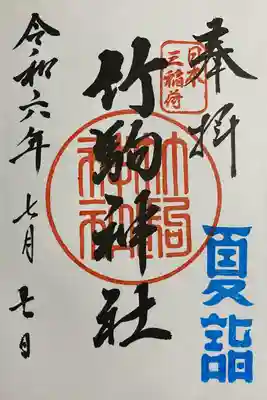 奉拝
日本
三稲荷
夏詣
竹駒神社
竹駒
神社
令和六年 七月 日